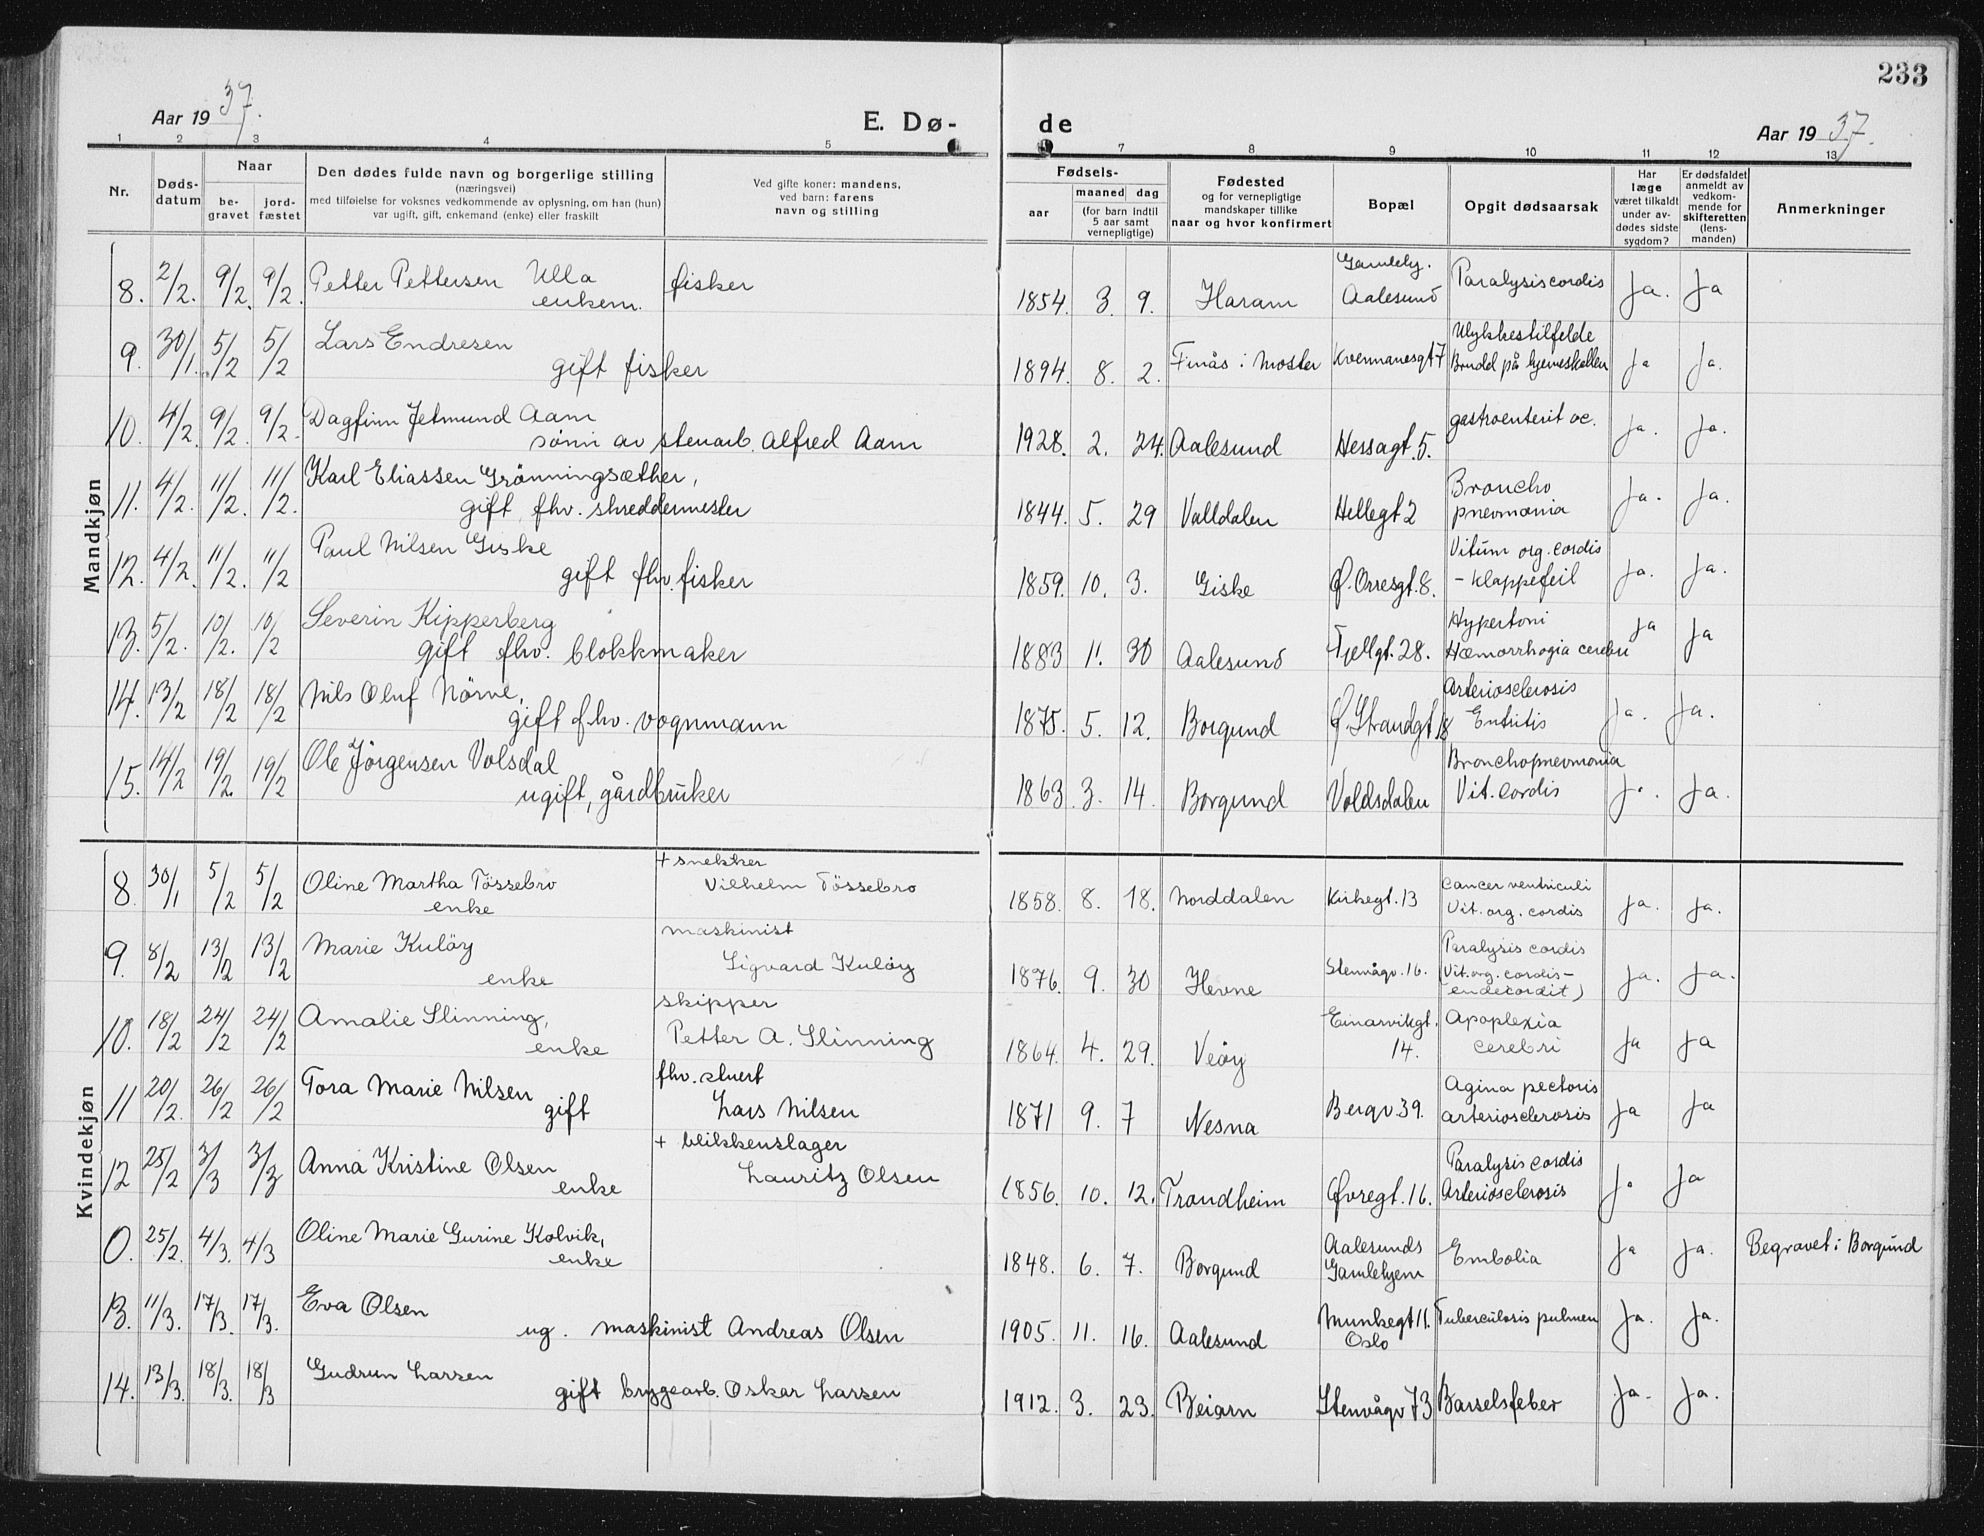 233
Aar 1937.
E. Dø-
de
Aar 1937.
1 2 3 4 5 7 8 9 10 11 12 13
Nr.
Døds-
datum
Naar
be-
gravet
jord-
fæstet
Den dødes fulde navn og borgerlige stilling
(næringsvei)
med tilføielse for voksnes vedkommende av oplysning, om han (hun)
var ugift, gift, enkemand (enke) eller fraskilt
Ved gifte koner: mandens,
ved barn: farens
navn og stilling
Fødsels-
aar
maaned dag
(for barn indtil
5 aar samt
vernepligtige)
Fødested
og for vernepligtige
mandskaper tillike
naar og hvor konfirmert
Bopæl
Opgit dødsaarsak
Har
læge
været tilkaldt
under av-
dødes sidste
sygdom?
Er dødsfaldet
anmeldt av
vedkom-
mende for
skifteretten
(lens-
manden)
Anmerkninger
Mandkjøn
8. 2/2. 9/2. 9/2. Petter Pettersen Ulla fisker
enkem.
1854. 3. 9. Haram Gamlehj. Aalesund Paralysis cordis Ja. Ja
9. 30/1. 5/2 5/2 Lars Endresen
gift fisker
1894. 8. 2. Finås i Moster Kvennanesgt 7 Ulykkestilfelde
Brudd på hjerneskallen Ja Ja.
10. 4/2. 9/2. 9/2. Dagfinn Jetmund Aam
sönn av stenarb. Alfred Aam
1928. 2. 24. Aalesund Hessagt. 5. gastroenterit ac. Ja. Ja.
11. 4/2. 11/2. 11/2. Karl Eliassen Grönningsæther,
gift fhv. skreddermester
1844. 5. 29 Valldalen Hellegt 2 Broncho
pneumonia Ja. Ja.
12. 4/2. 11/2. 11/2 Paul Nilsen Giske
gift fhv. fisker
1859. 10. 3. Giske Ø. Orresgt. 8. Vitum org. cordis
- Klappefeil Ja. Ja.
13. 5/2. 10/2. 10/2 Severin Kipperberg
gift fhv. blokkmaker
1883 11. 30 Aalesund Fjellgt. 28. Hypertoni
Hæmorrhogia cerebri Ja Ja
14. 13/2 18/2 18/2 Nils Oluf Nörve,
gift fhv. vognmann
1875. 5. 12. Borgund Ø. Strandgt. 18 Arteriosclerosis
Entritis Ja. Ja.
15. 14/2 19/2. 19/2 Ole Jörgensen Volsdal
ugift, gårdbruker
1863. 3. 14. Borgund Voldsdalen Bronchopneumonia
Vit. cordis Ja. Ja.
Kvindekjøn
8. 30/1 5/2 5/2 Oline Martha Tössebro + snekker
enke Vilhelm Tössebro
1858. 8. 18. Norddalen Kirkegt. 13 Cancer ventriculi
Vit. org. cordis Ja. Ja.
9. 8/2 13/2 13/2 Marie Kulöy maskinist
enke Sigvard Kulöy
1876. 9. 30 Hevne Stenvågv. 16. Paralysis cordis
(Vit. org. cordis-
endecordit) Ja. Ja.
10. 18/2 24/2 24/2 Amalie Slinning, skipper
enke Petter A. Slinning
1864. 4. 29. Veöy Einarvikgt. 14. Apoplexia
cerebri Ja Ja
11 20/2. 26/2 26/2 Tora Marie Nilsen fhv. stuert
gift Lars Nilsen
1871 9. 7 Nesna Bergv 39. Agina pectoris
arteriosclerosis Ja Ja
12 25/2 3/3 3/3 Anna Kristine Olsen + blikkenslager
enke Lauritz Olsen
1856. 10. 12. Trondheim Øvregt. 16. Paralysis cordis
Arteriosclerosis Ja Ja
0. 25/2. 4/3. 4/3 Oline Marie Gurine Kolvik,
enke
1848. 6. 7. Borgund Aalesunds
Gamlehjem Embolia Ja Ja. Begravet i Borgund
13. 11/3. 17/3. 17/3. Eva Olsen
ug. maskinist Andreas Olsen
1905. 11. 16. Aalesund Munkegt 11.
Oslo Tuberculosis pulmen Ja. Ja.
14. 13/3. 18/3. 18/3 Gudrun Larsen
gift bryggearb. Oskar Larsen
1912. 3. 23. Beiarn Stenvågv 73 Barselsfeber Ja. Ja.